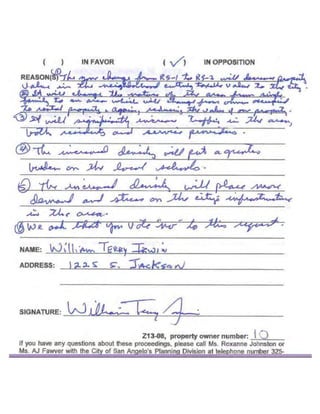 ( ) IN FAVOR (✓) IN OPPOSITION
REASON(S) ① The zone change from RS-1 to RS-2 will decrease property
value in the neighborhood entirely taxable value to the city.
② It will change the nature of the area from single
family to an area which will change from owner occupied
to rental property, again, reducing the value of our property.
③ It will significantly increase traffic in the area,
both residents and service providers.
④ The increased density will put a greater
burden on the local schools.
⑤ The increased density will place more
demand and stress on the city's infrastructure
in the area.
⑥ We ask that you vote "no" to this request.
NAME: William Terry Irwin
ADDRESS: 1225 S. Jackson
SIGNATURE: William Terry Irwin
Z13-08, property owner number: 10
If you have any questions about these proceedings, please call Ms. Roxanne Johnston or
Ms. AJ Fawver with the City of San Angelo's Planning Division at telephone number 325-